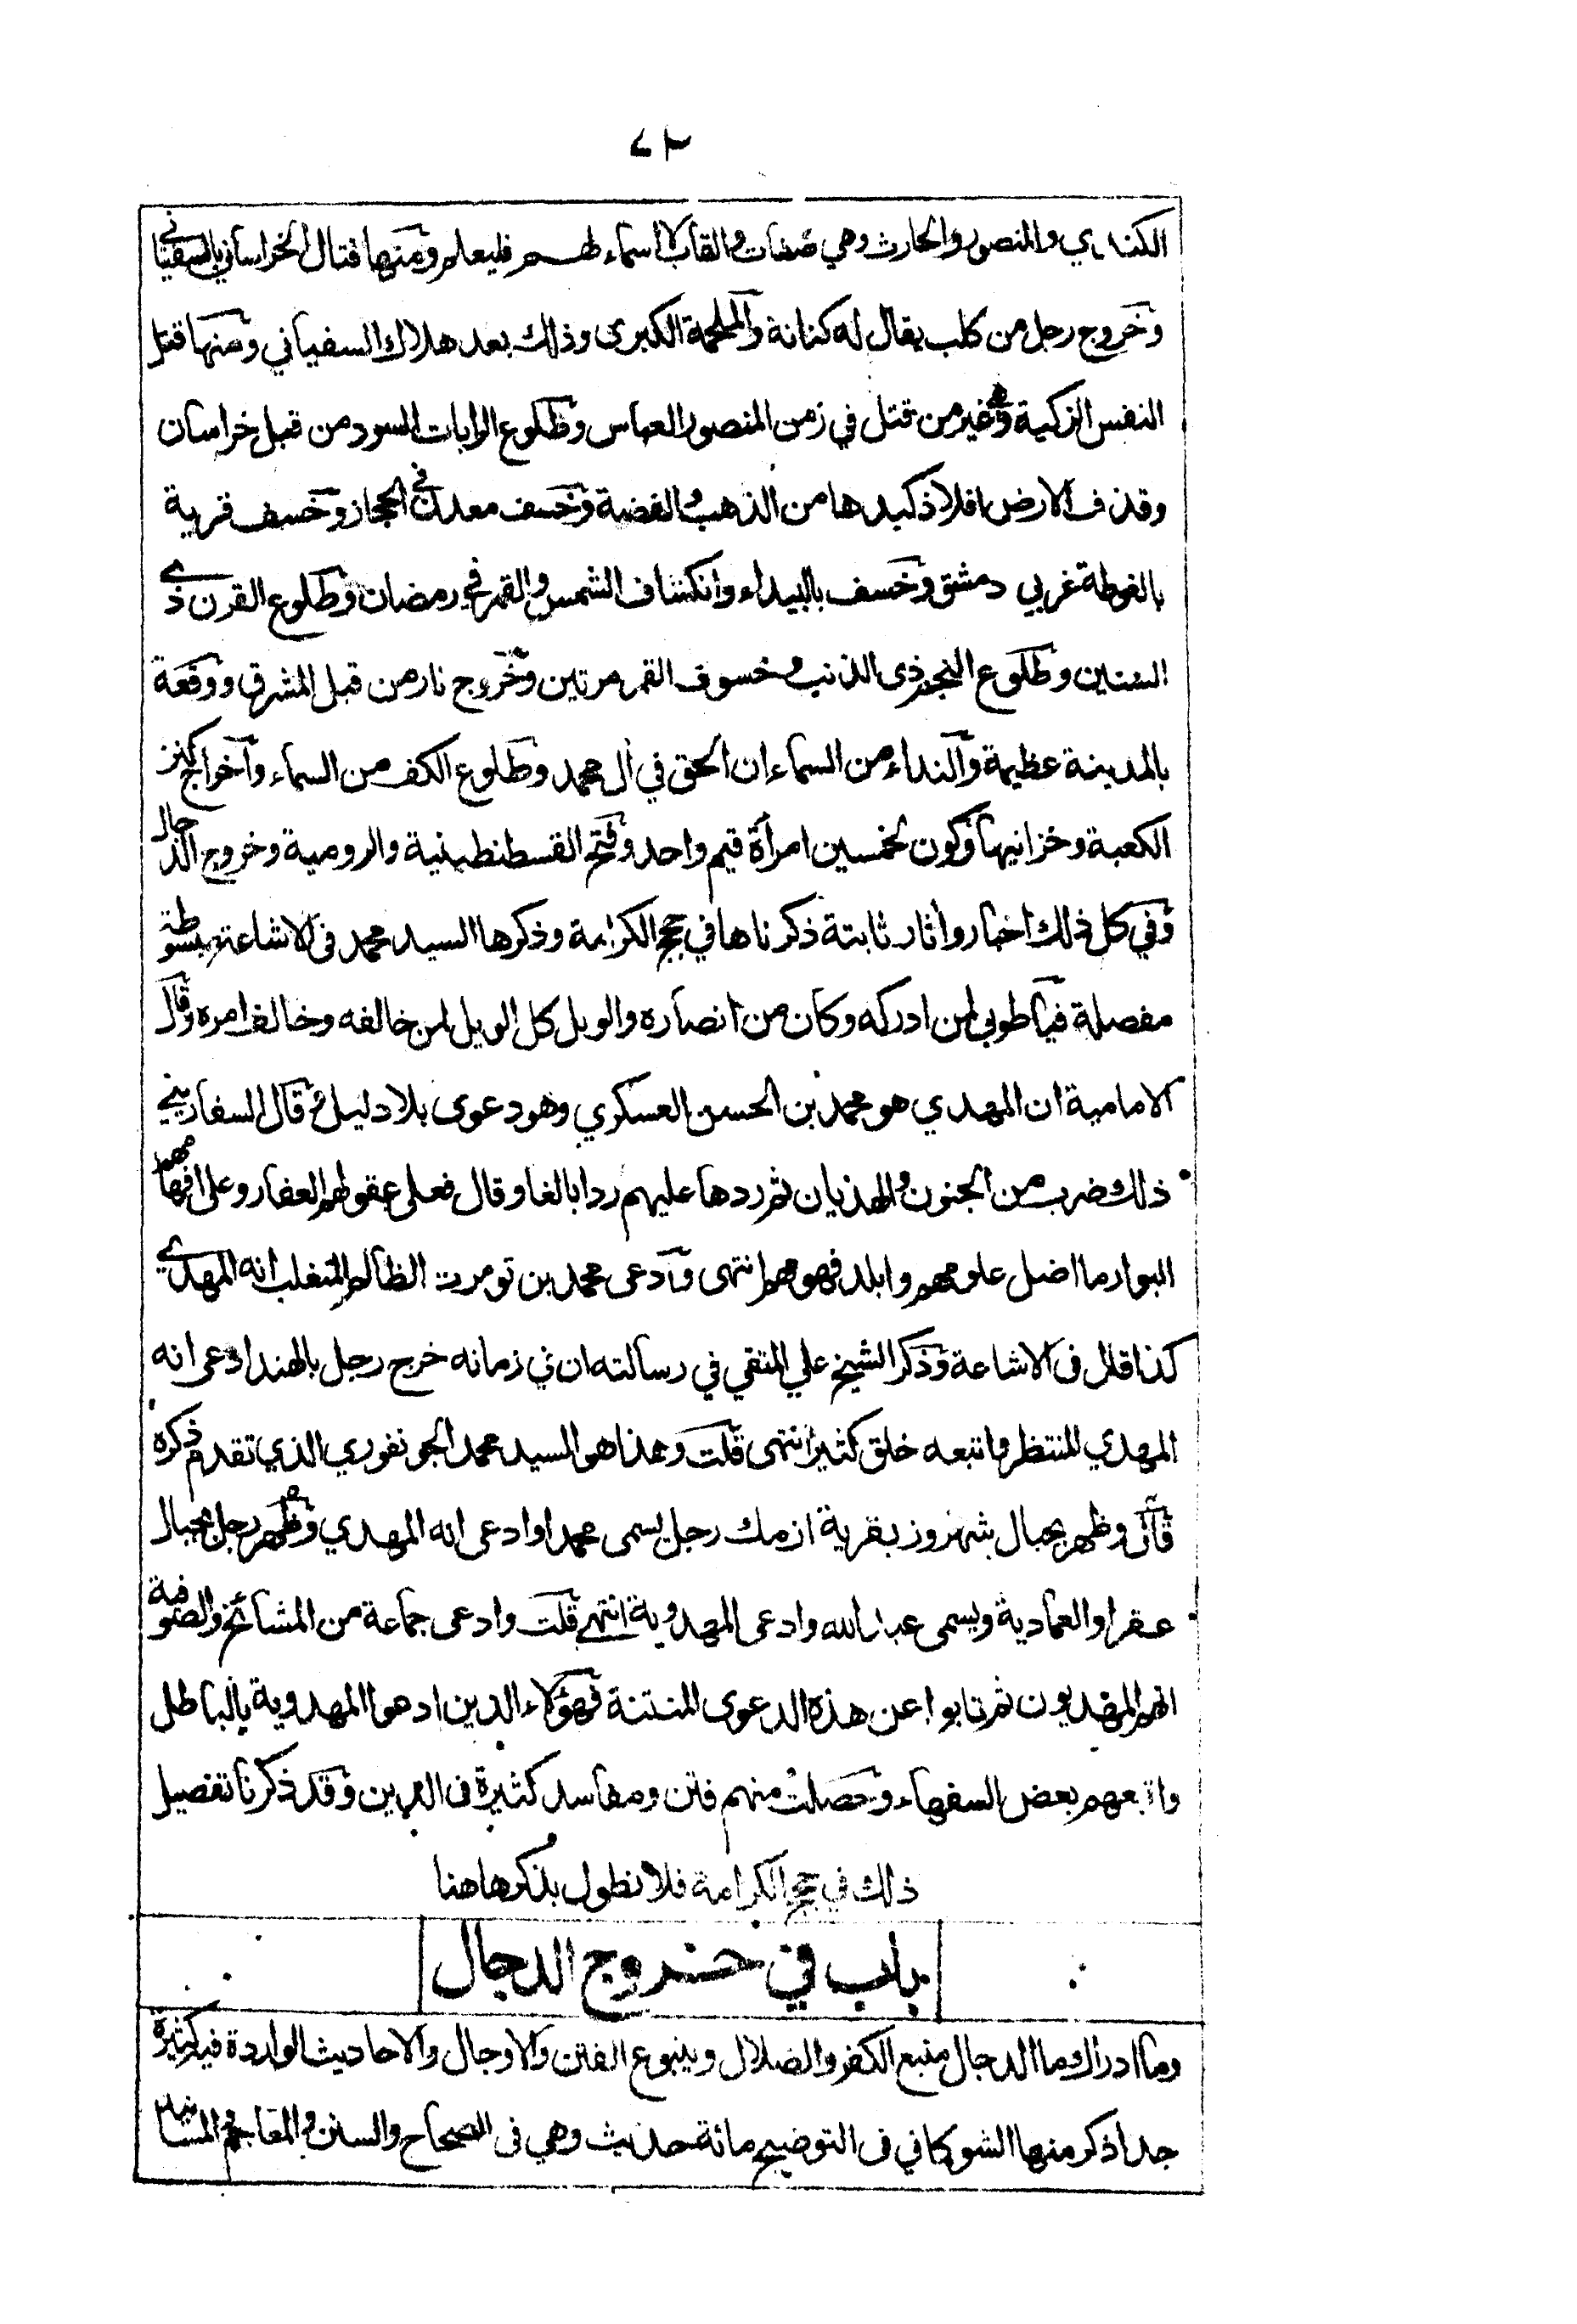 ٧٢
الكندي والمنصور والحارث وهي صفات والقاب لا اسماء لهم فليعلم ومنها قتال الخراساني بالسفياني
وخروج رجل من كلب يقال له كنانة والملحمة الكبرى وذلك بعد هلاك السفياني ومنها قتل
النفس الزكية وهو غير من قتل في زمن المنصور العباس وطلوع الرايات السود من قبل خراسان
وقذف الارض افلاذ كبدها من الذهب والفضة وخسف معدن في الحجاز وخسف قرية
بالغوطة غربي دمشق وخسف بالبيداء وانكشاف الشمس والقمر في رمضان وطلوع القرن ذي
السنين وطلوع النجم ذى الذنب وخسوف القمر مرتين وخروج نار من قبل المشرق ووقعة
بالمدينة عظيمة والنداء من السماء ان الحق في آل محمد وطلوع الكف من السماء واخراج كنز
الكعبة وخزانيها وكون لخمسين امرأة قيم واحد وفتح القسطنطينية والرومية وخروج الدجال
وفي كل ذلك اخبار وآثار ثابتة ذكرناها في حجج الكرامة وذكرها السيد محمد فى الاشاعة مبسوطة
مفصلة فيا طوبى لمن ادركه وكان من انصاره والويل كل الويل لمن خالفه وخالف امره وقال
الامامية ان المهدي هو محمد بن الحسن العسكري وهو دعوى بلا دليل قال السفاريني
ذلك ضرب من الجنون والهذيان ثم ردها عليهم ردا بالغا وقال فعلى عقولهم العفار وعلى افهامهم
البوار ما اضل علومهم وابلد فهومهم انتهى وادعى محمد بن تومرت الظالم المتغلب انه المهدي
كذا قال فى الاشاعة وذكر الشيخ علي المتقي في رسالته ان في زمانه خرج رجل بالهند ادعى انه
المهدي المنتظر واتبعه خلق كثير انتهى قلت وهذا هو السيد محمد الجونفوري الذي تقدم ذكره
قال وظهر بجبال شهروز بقرية ازمك رجل يسمى محمدا وادعى انه المهدي وظهر رجل بجبال
عقر او العمادية ويسمى عبد الله وادعى المهدوية انتهى قلت وادعى جماعة من المشائخ والصوفية
انهم المهديون ثم تابوا عن هذه الدعوى المنتنة فهؤلاء الذين ادعوا المهدوية بالباطل
واتبعهم بعض السفهاء وحصلت منهم فتن ومفاسد كثيرة فى الدين وقد ذكرنا تفصيل
ذلك في حجج الكرامة فلا نطول بذكرها هنا
باب في خروج الدجال
وما ادراك ما الدجال منبع الكفر والضلال وينبوع الفتن والاوجال والاحاديث الواردة فيه كثيرة
جدا ذكر منها الشوكاني فى التوضيح مائة حديث وهي فى الصحاح والسنن والمعاجم والمسانيد